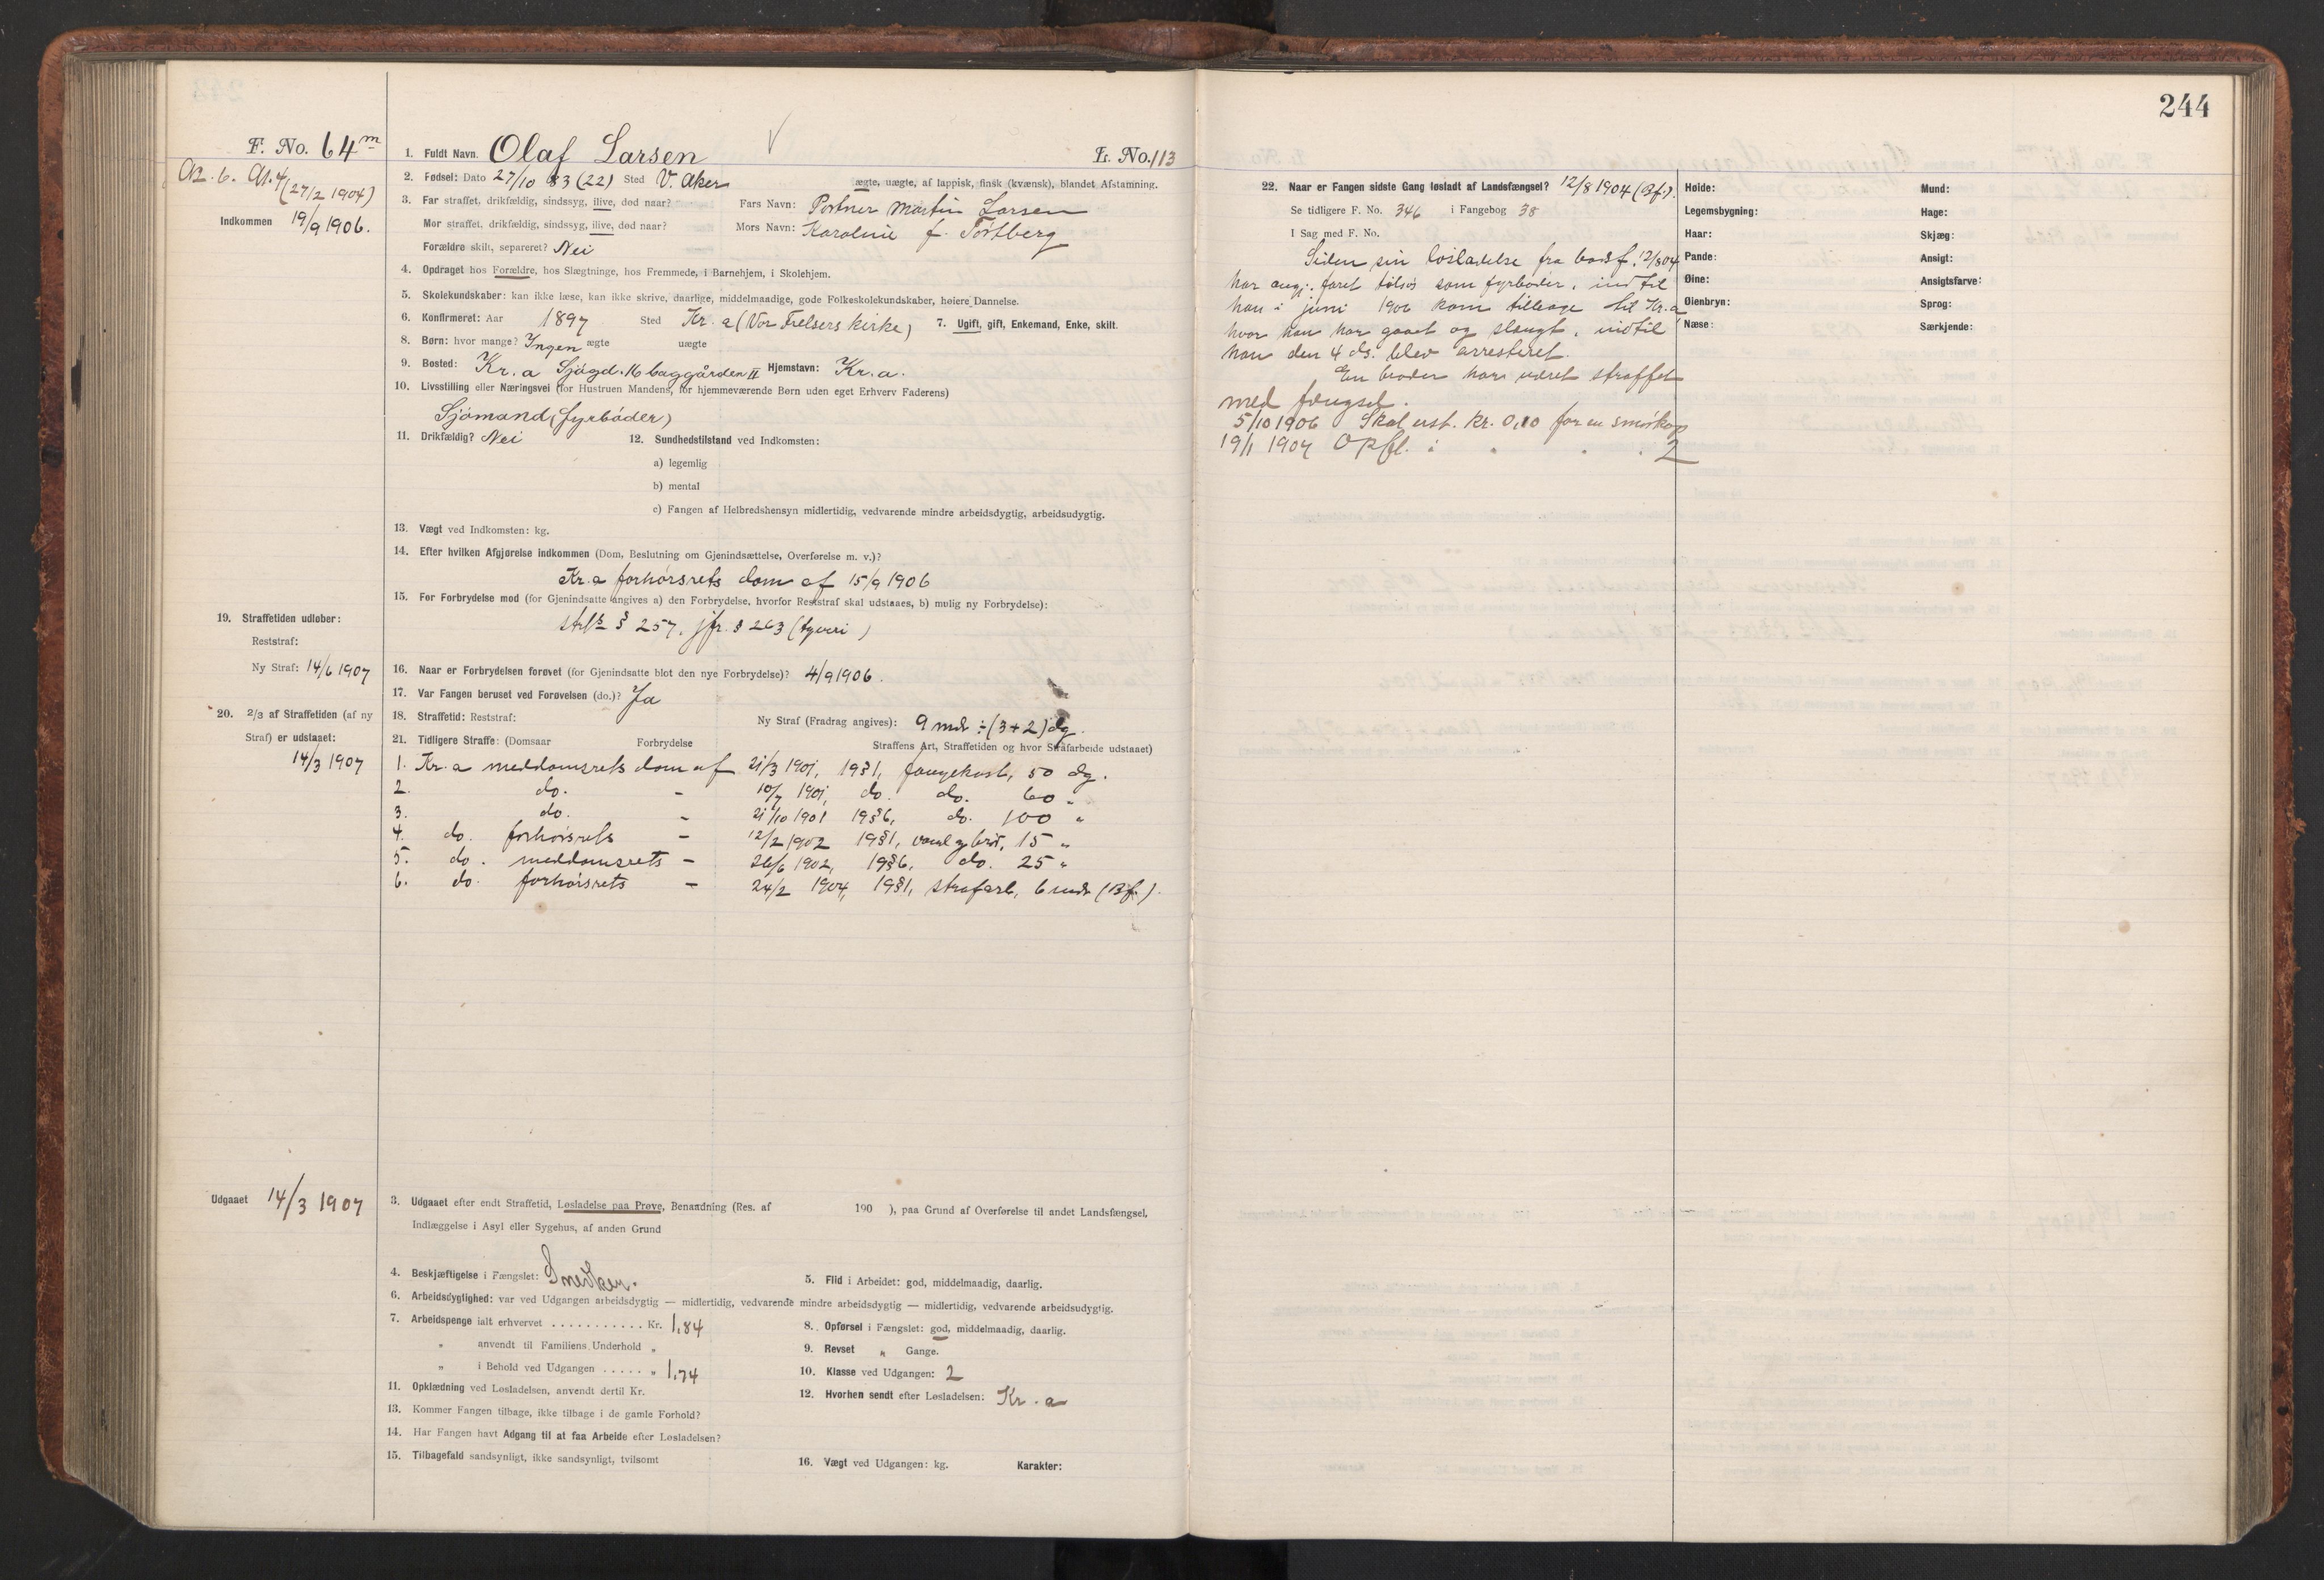 244
F. No. 64 m
1. Fuldt Navn. Olaf Larsen
L. No. 113
(27/2 1904)
2. Fødsel: Dato 27/10 83 (22) Sted V. Aker
ægte, uægte, af lappisk, finsk (kvænsk), blandet Afstamning.
Indkommen 19/9 1906.
3. Far straffet, drikfældig, sindssyg, ilive, død naar?
Fars Navn: Portner Martin Larsen
Mor straffet, drikfældig, sindssyg, ilive, død naar?
Mors Navn: Karoline f. Tortberg
Forældre skilt, separeret? Nei
4. Opdraget hos Forældre, hos Slægtninge, hos Fremmede, i Barnehjem, i Skolehjem.
5. Skolekundskaber: kan ikke læse, kan ikke skrive, daarlige, middelmaadige, gode Folkeskolekundskaber, høiere Dannelse.
6. Konfirmeret: Aar 1897 Sted Kr.a (Vor Frelsers Kirke) 7. Ugift, gift, Enkemand, Enke, skilt.
8. Børn: hvor mange? Ingen ægte uægte
9. Bosted: Kr.a Sjøgd. 16 baggården II Hjemstavn: Kr.a.
10. Livsstilling eller Næringsvei (for Hustruen Mandens, for hjemmeværende Børn uden eget Erhverv Faderens)
Sjømand (fyrbøder)
11. Drikfældig? Nei 12. Sundhedstilstand ved Indkomsten:
a) legemlig
b) mental
c) Fangen af Helbredshensyn midlertidig, vedvarende mindre arbeidsdygtig, arbeidsudygtig.
13. Vægt ved Indkomsten: kg.
14. Efter hvilken Afgjørelse indkommen (Dom, Beslutning om Gjenindsættelse, Overførelse m. v.)?
Kr.a forhørsrets dom af 15/9 1906
15. For Forbrydelse mod (for Gjenindsatte angives a) den Forbrydelse, hvorfor Reststraf skal udstaaes, b) mulig ny Forbrydelse):
§ 257, jfr. § 263 (tyveri)
19. Straffetiden udløber:
Reststraf:
Ny Straf: 14/6 1907
16. Naar er Forbrydelsen forøvet (for Gjenindsatte blot den nye Forbrydelse)? 4/9 1906.
17. Var Fangen beruset ved Forøvelsen (do.)? Ja
20. 2/3 af Straffetiden (af ny
Straf) er udstaaet:
14/3 1907
18. Straffetid: Reststraf: Ny Straf (Fradrag angives): 9 mdr ÷ (3+2) dg.
21. Tidligere Straffe: (Domsaar Forbrydelse Straffens Art, Straffetiden og hvor Strafarbeide udstaaet)
1. Kr.a meddomsrets dom af 21/3 1901, 19§1, fangekost, 50 dg.
2. do. - 10/7 1901, do. do. 60 "
3. do. - 21/10 1901 19§6, do. 100 "
4. do. forhørsrets - 12/2 1902 19§1, 15 "
5. do. meddomsrets - 26/6 1902, 19§6, do. 25 "
6. do. forhørsrets - 24/2 1904, 19§1, strafarb, 6 mdr (Bf.).
Udgaaet 14/3 1907
3. Udgaaet efter endt Straffetid, Løsladelse paa Prøve, Benaadning (Res. af 190 ), paa Grund af Overførelse til andet Landsfængsel,
Indlæggelse i Asyl eller Sygehus, af anden Grund
4. Beskjæftigelse i Fængslet: Snedker.
5. Flid i Arbeidet: god, middelmaadig, daarlig.
6. Arbeidsdygtighed: var ved Udgangen arbeidsdygtig — midlertidig, vedvarende mindre arbeidsdygtig — midlertidig, vedvarende arbeidsudygtig.
7. Arbeidspenge ialt erhvervet ........... Kr. 1,84
8. Opførsel i Fængslet: god, middelmaadig, daarlig.
" anvendt til Familiens Underhold "
9. Revset " Gange.
" i Behold ved Udgangen ..... " 1,74
10. Klasse ved Udgangen: 2
11. Opklædning ved Løsladelsen, anvendt dertil Kr.
12. Hvorhen sendt efter Løsladelsen: Kr.a
13. Kommer Fangen tilbage, ikke tilbage i de gamle Forhold?
14. Har Fangen havt Adgang til at faa Arbeide efter Løsladelsen?
15. Tilbagefald sandsynligt, ikke sandsynligt, tvilsomt
16. Vægt ved Udgangen: kg. Karakter:
22. Naar er Fangen sidste Gang løsladt af Landsfængsel? 12/8 1904 (Bf.).
Se tidligere F. No. 346 i Fangebog 38
I Sag med F. No.
Siden sin løsladelse fra bodsf. 12/8 04
har faret tilsjøs som fyrbøder, indtil
han i juni 1906 kom tilbage til Kr.a
hvor han har gaaet og slængt, indtil
han den 4 ds. blev arresteret.
En broder har været straffet
med fængsel.
5/10 1906 Skal erst. Kr. 0,10 for en smørkop
19/1 1907 Opfl. i 2
Høide:
Legemsbygning:
Haar:
Pande:
Øine:
Øienbryn:
Næse:
Mund:
Hage:
Skjæg:
Ansigt:
Ansigtsfarve:
Sprog:
Særkjende: